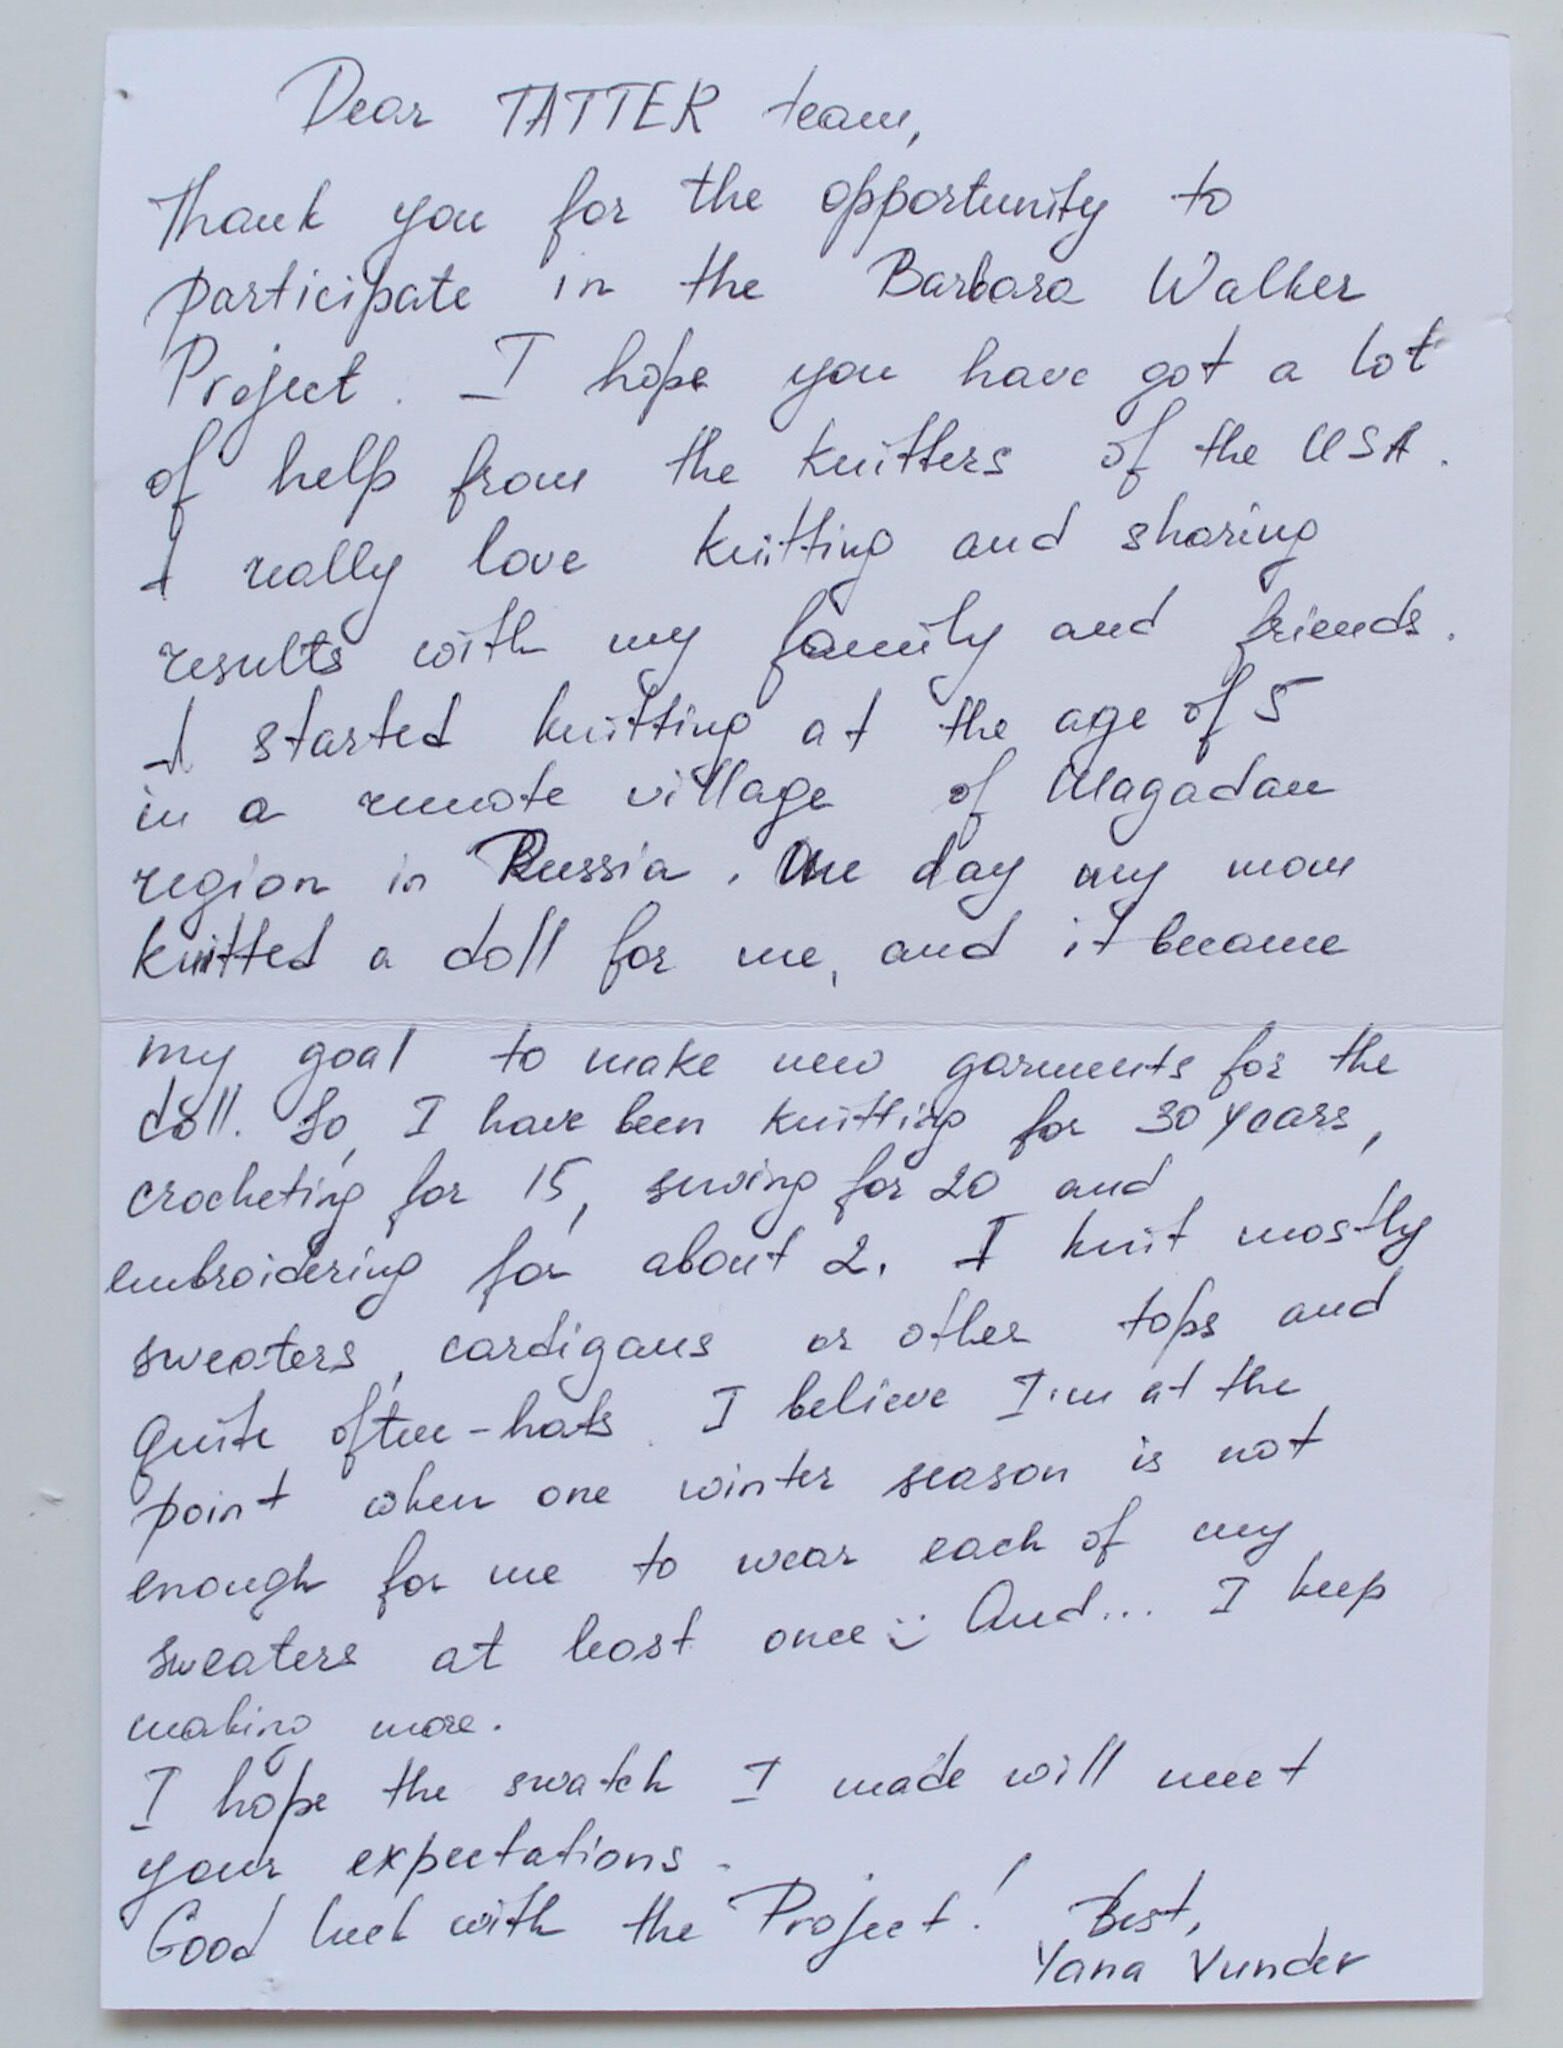 Dear TATTER team,
Thank you for the opportunity to
participate in the Barbara Walker
Project. I hope you have got a lot
of help from the knitters of the USA.
I really love knitting and sharing
results with my family and friends.
I started knitting at the age of 5
in a remote village of Magadan
region in Russia. One day my mom
knitted a doll for me, and it became
my goal to make new garments for the
doll. So, I have been knitting for 30 years,
crocheting for 15, sewing for 20 and
embroidering for about 2. I knit mostly
sweaters, cardigans or other tops and
quite often - hats. I believe I'm at the
point when one winter season is not
enough for me to wear each of my
sweaters at least once :) And... I keep
making more.
I hope the swatch I made will meet
your expectations.
Good luck with the Project! Best,
Yana Vunder